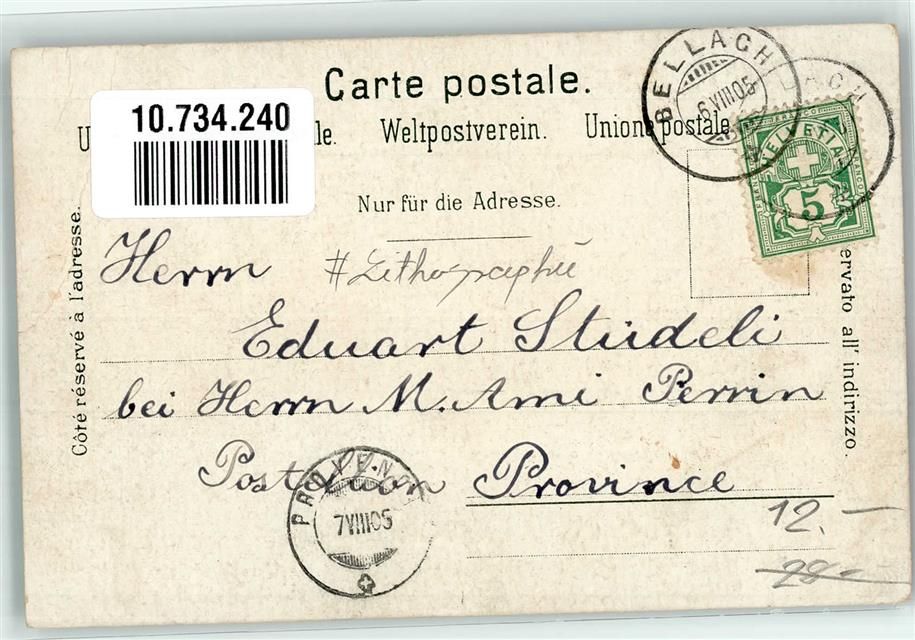 Carte postale.
10.734.240
Weltpostverein. Unione postale
Nur für die Adresse.
Côté réservé à l'adresse.
ervato all' indirizzo.
BELLACH
6 VIII 05
LACH
HELVETIA
FRANCO
5
Herrn
#Lithographie
Eduart Studeli
bei Herrn M. Ami Perrin
Province
7 VIII 05
12.—